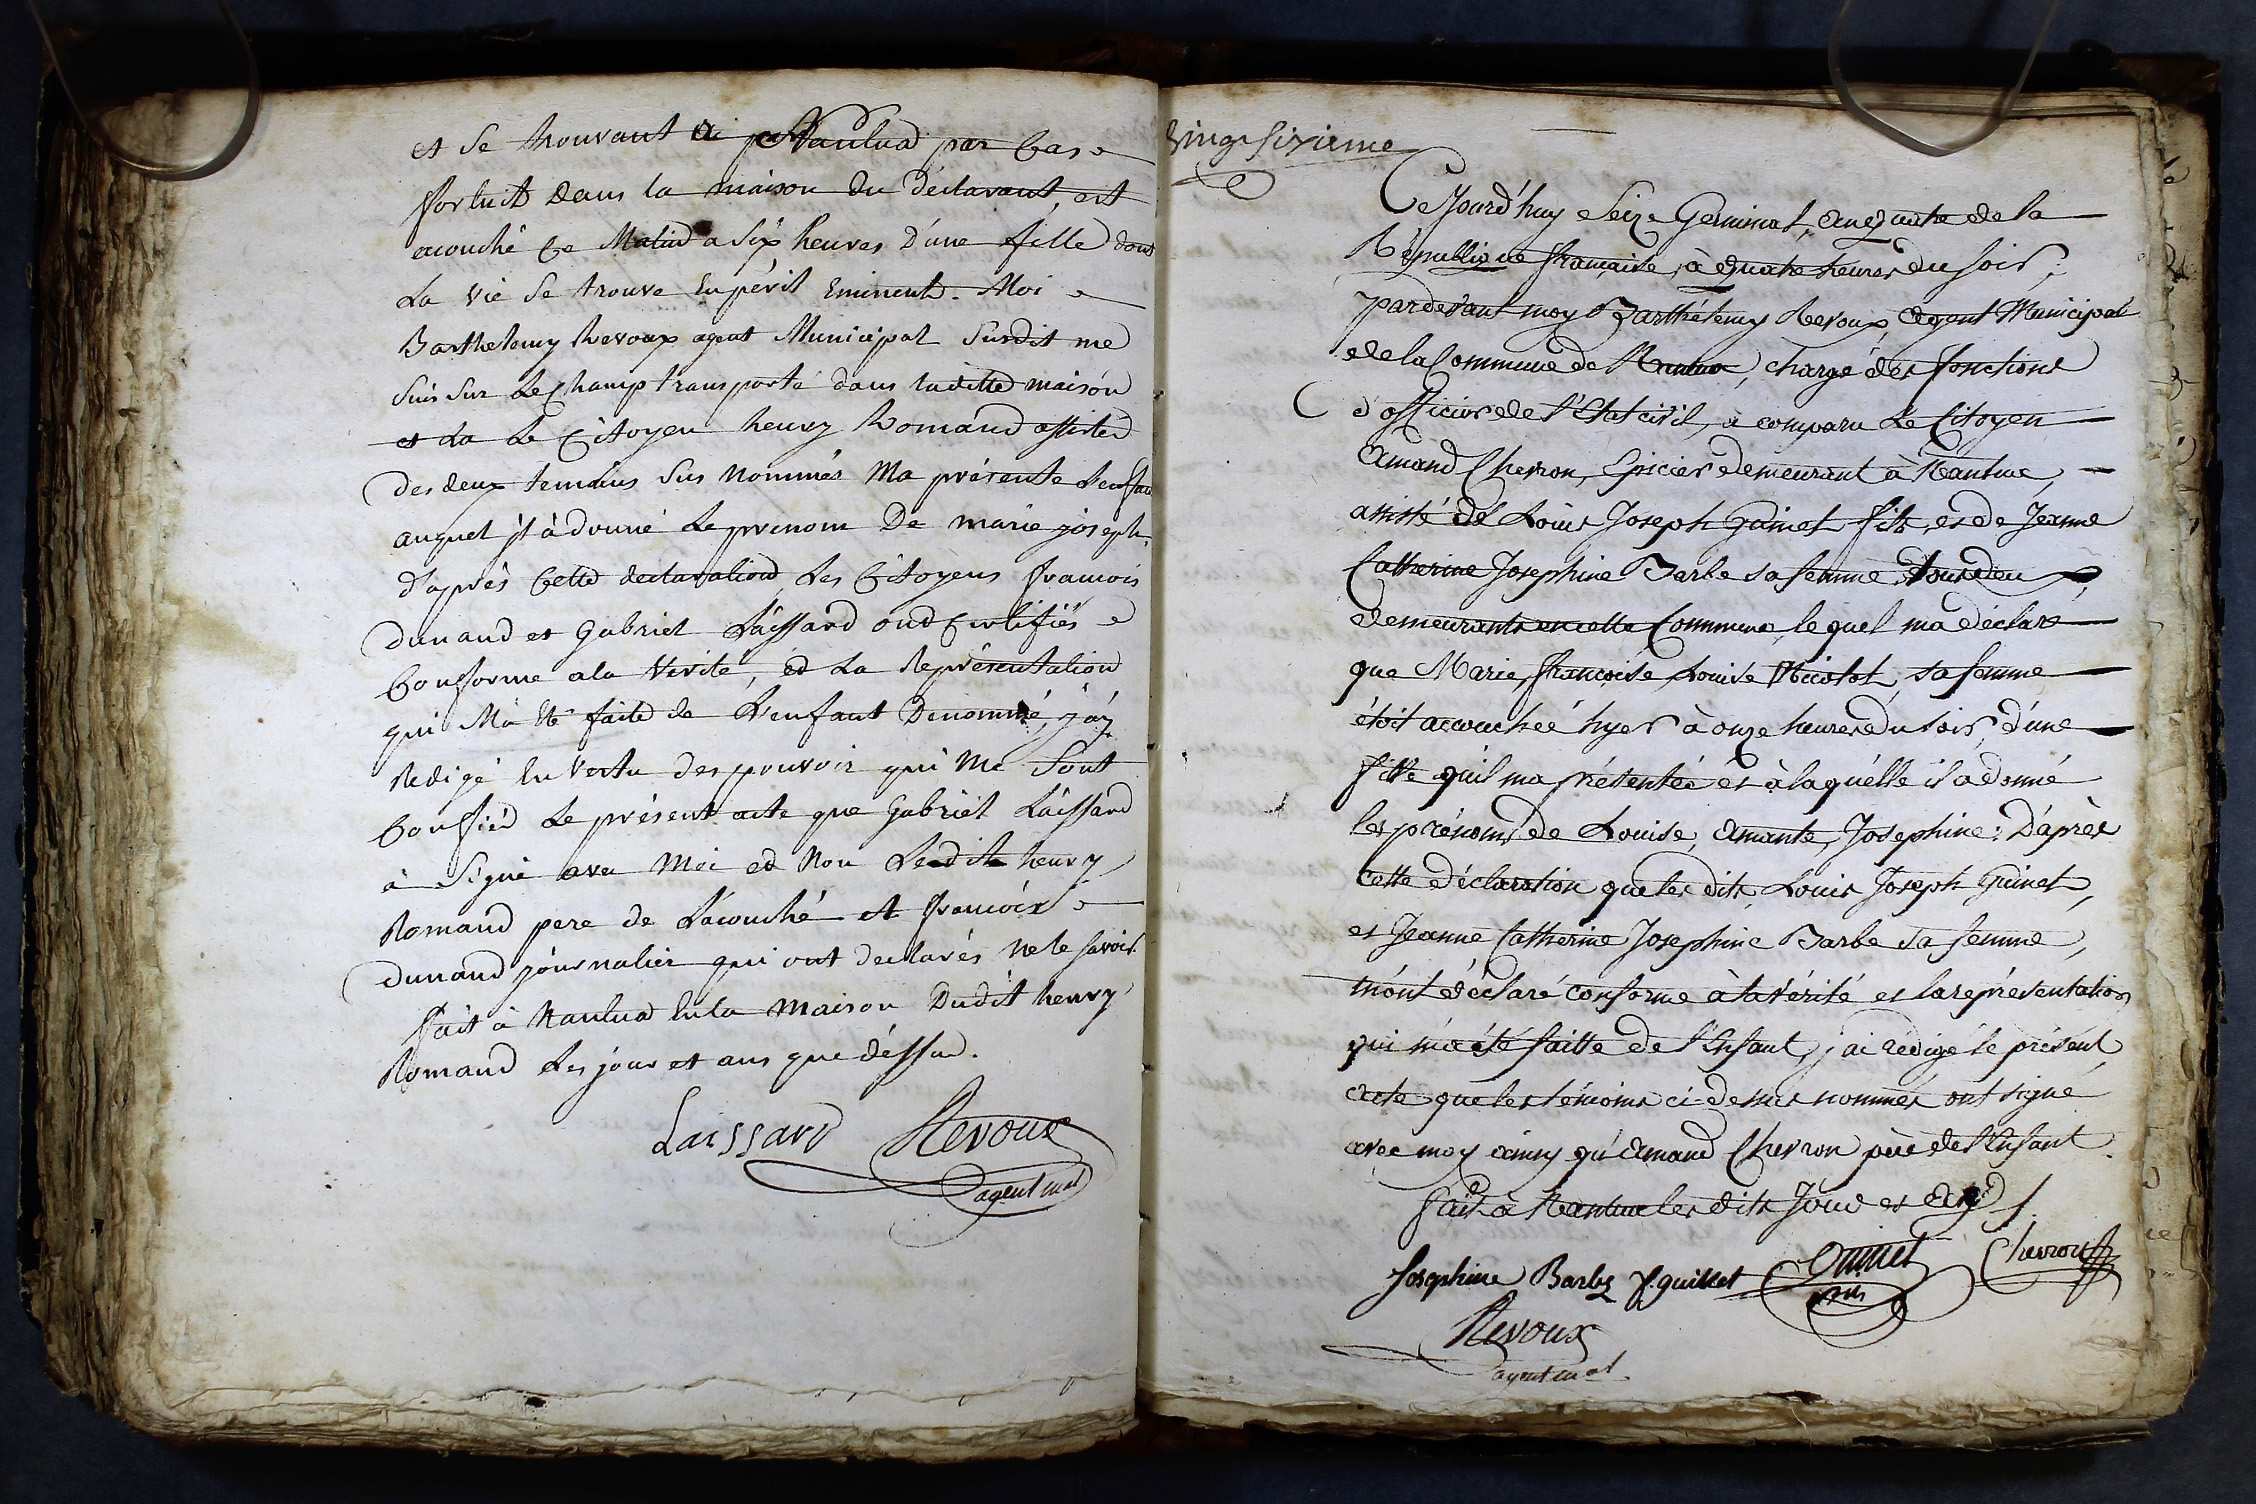 et se trouvant a Nantua par Cas
fortuit dans la maison du déclarant, est
acouché Ce Matin a six heures D'une fille dont
La vie se trouve En péril Eminent. Moi
Barthelemy Revoux agent Municipal Susdit me
suis sur Le Champ transporté dans laditte maison
et La Le Citoyen henry Romand assisté
des deux temoins sus nommés M'a présenté L'enfant
auquel jl à donné Le prenom De marie joseph.
d'après Cette declaration Les Citoyens francois
dunand et Gabriel Laissard ond Certifiés
Conforme a la Verité, et La Représentation
qui M'a été faite de L'enfant Denommé, j'ay
Redigé En Vertu des pouvoir qui Me Sont
Confiés Le présent acte que Gabriel Laissard
à Signé avec Moi et Non Ledit henry
Romand pere de L'acouché et francois
dunand journalier qui ont declarés Ne le savoir
fait à Nantua En la Maison Dudit henry
Romand Les jour et ans que dessus.
Laissard Revoux
agent mal
Vingt sixieme
Cejourd'huy Seize Germinal, an quatre de la
République française, à quatre heures du soir,
pardevant moy Barthélemy Revoux, Agent Municipal
de la Commune de Nantua, chargé des fonctions
d'officier de l'Etat civil, a comparu Le Citoyen
Amand Chevron, Epicier demeurant à Nantua,
assisté de Louis Joseph Guinet fils, et de Jeanne
Catherine Josephine Barbe sa femme, tous deux
demeurants en cette Commune, lequel m'a déclaré
que Marie, françoise, Louise sa femme
étoit accouchée hyer à onze heures du soir, d'une
fille qu'il m'a présentée et à laquelle il a donné
les prénoms de Louise, Amante, Josephine; D'après
cette déclaration que les dits Louis Joseph Guinet,
et Jeanne Catherine Josephine Barbe sa femme,
m'ont déclaré conforme à la vérité et la représentation
qui m'a été faitte de l'Enfant, j'ai rédigé le présent
acte que les témoins ci-dessus nommés ont signé
avec moy ainsy qu'Amand Chevron père de l'Enfant.
fait à Nantua les dits Jour et An
Josephine Barbe f. guillet Guinet Chevron
fils
Revoux
agent mal